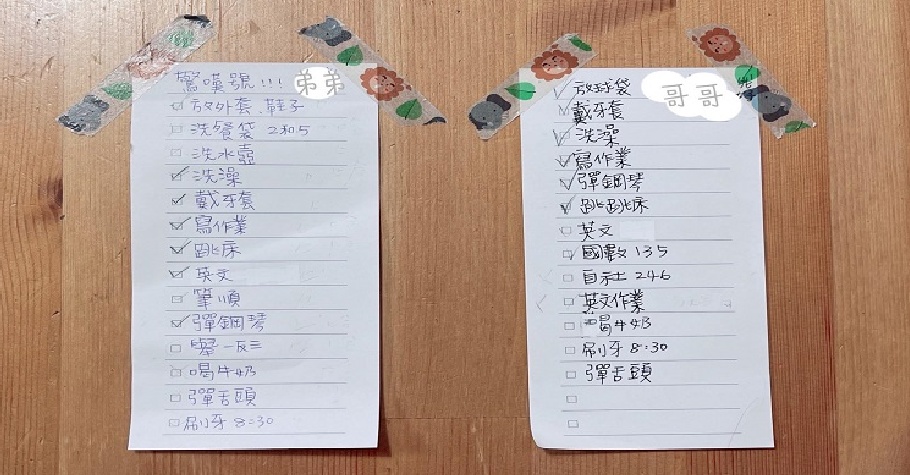 驚嘆號!!! 弟弟
放外套、鞋子
洗餐袋 2和5
洗水壺
洗澡
戴牙套
寫作業
跳床
英文
筆順
彈鋼琴
舉一反三
喝牛奶
彈舌頭
刷牙 8:30
放球袋 哥哥
戴牙套
洗澡
寫作業
彈鋼琴
跳跳床
英文
國數 135
自社 246
英文作業
喝牛奶
刷牙 8:30
彈舌頭